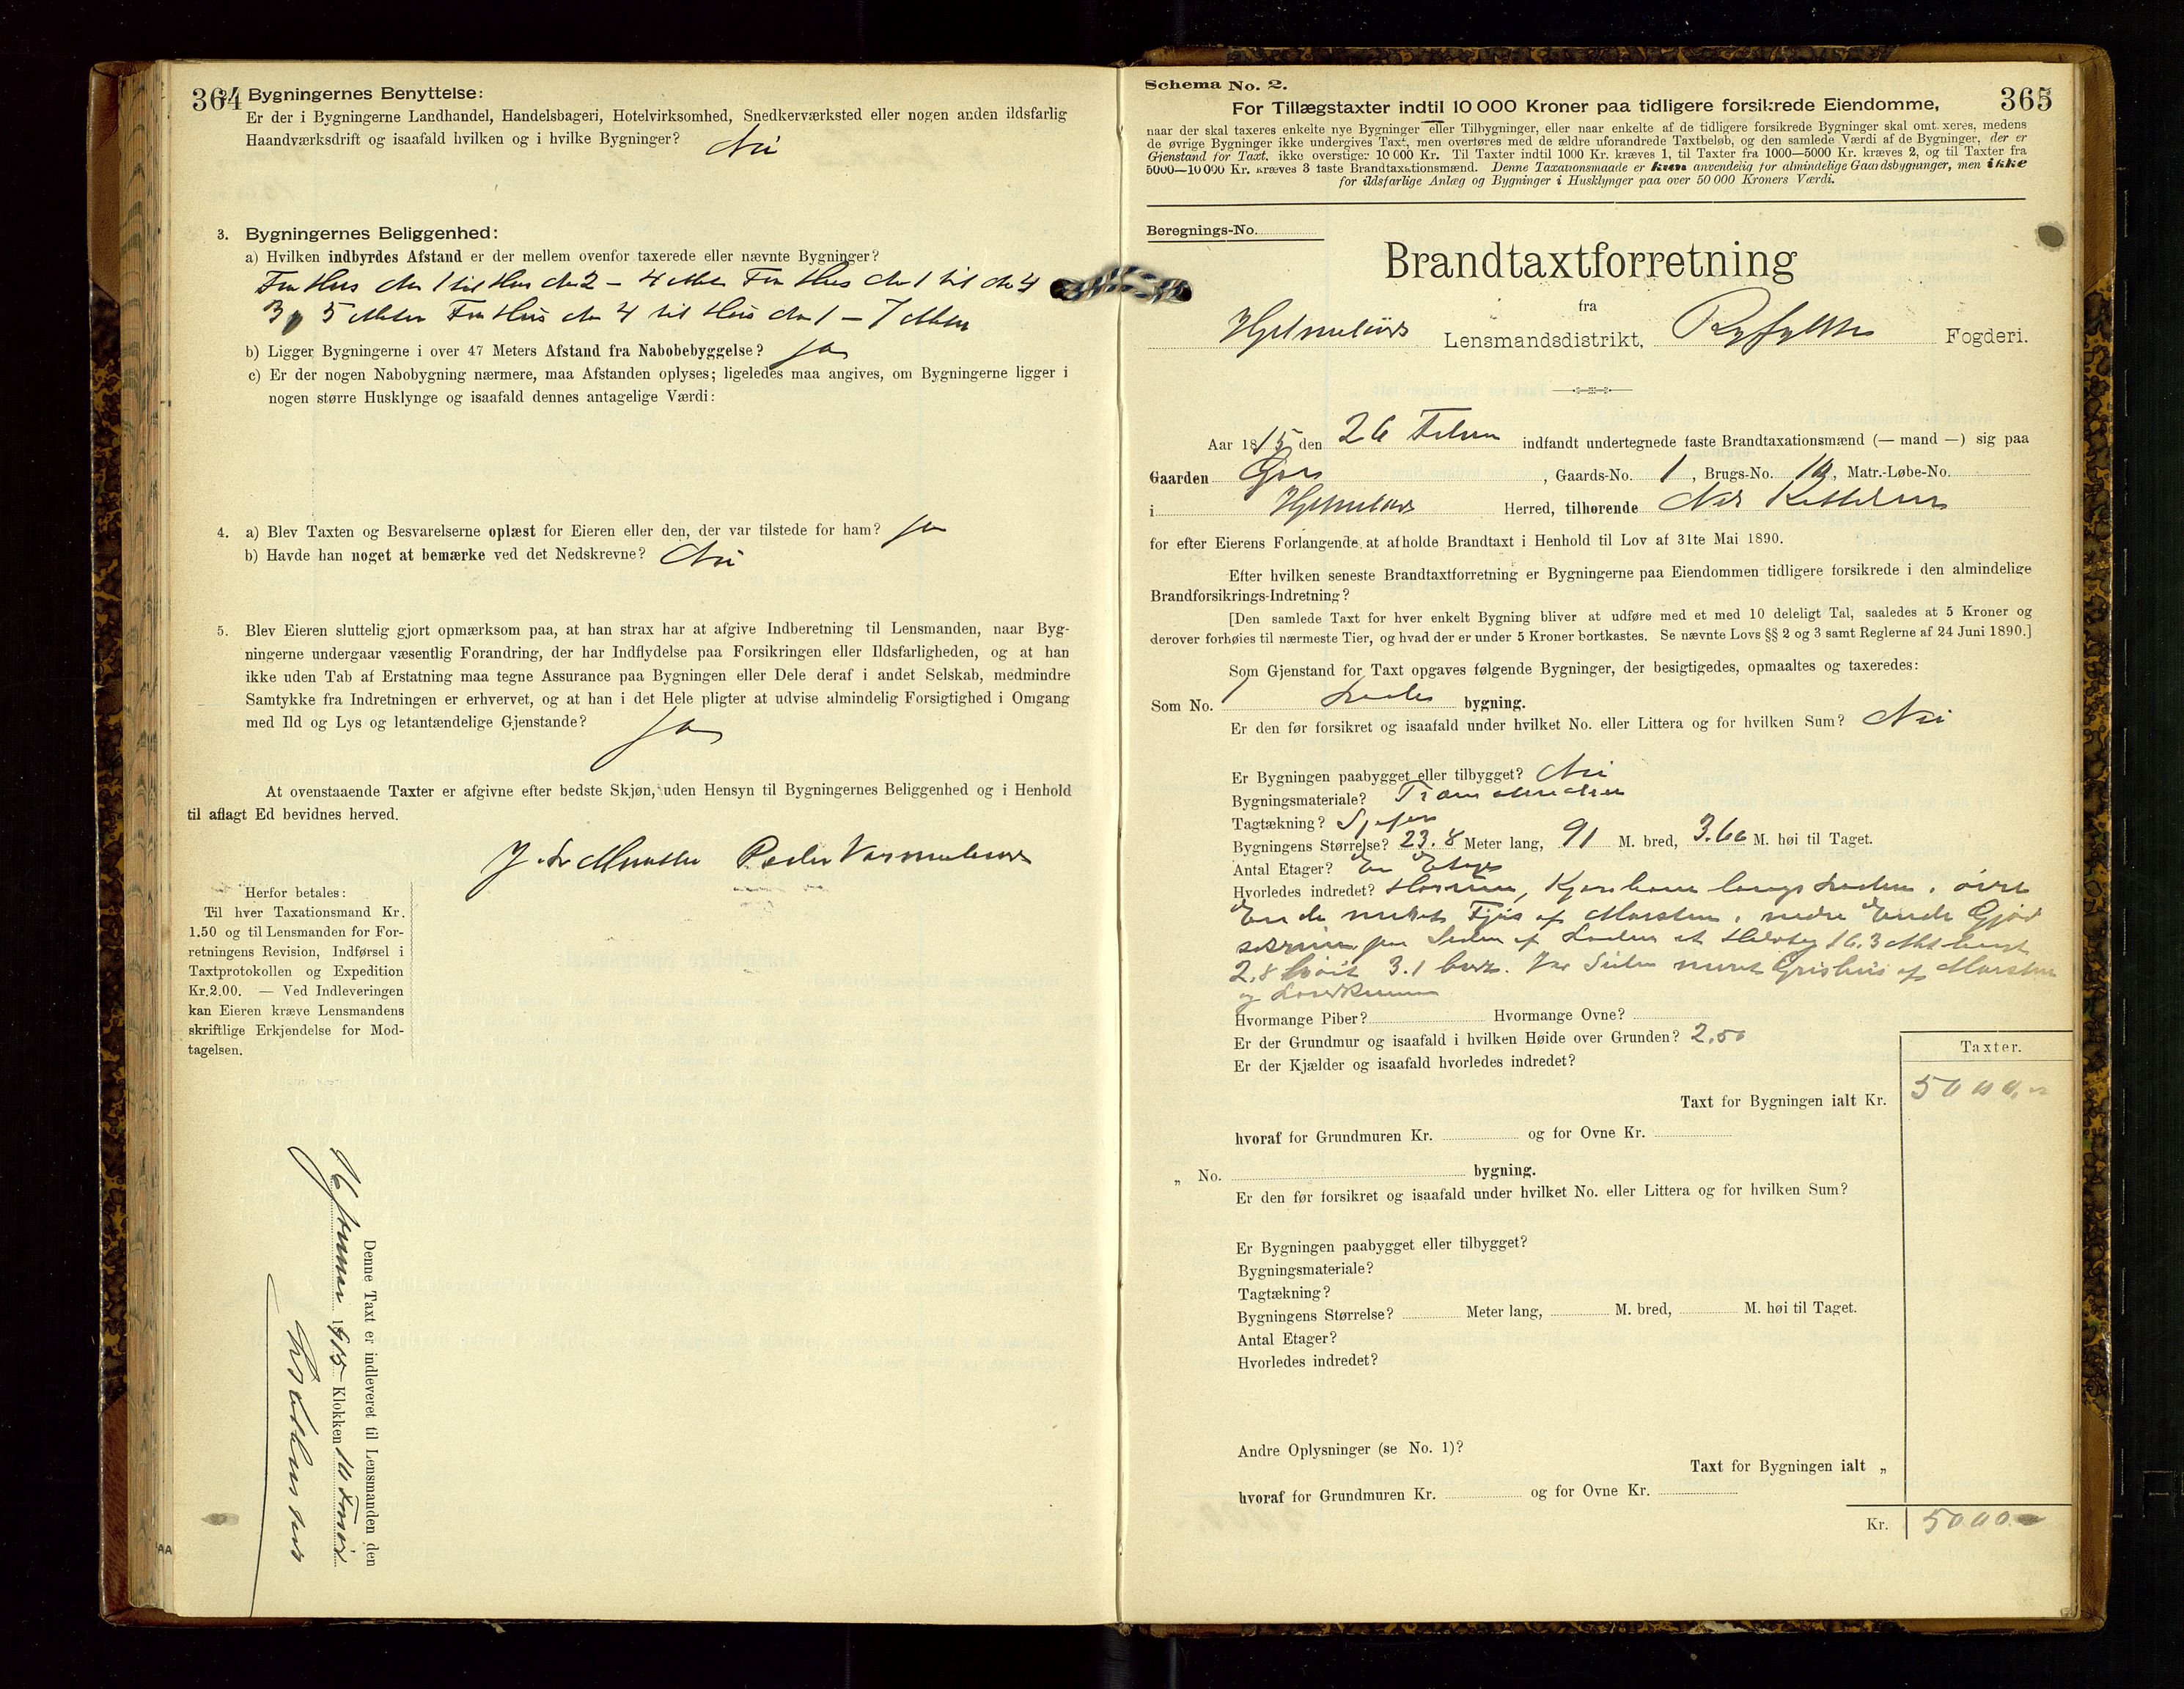 364
2. Bygningernes Benyttelse:
Er der i Bygningerne Landhandel, Handelsbageri, Hotelvirksomhed, Snedkerværksted eller nogen anden ildsfarlig
Haandværksdrift og isaafald hvilken og i hvilke Bygninger? Nei
3. Bygningernes Beliggenhed:
a) Hvilken indbyrdes Afstand er der mellem ovenfor taxerede eller nævnte Bygninger?
Fra Hus No 1 til Hus No 2 – 4 Meter Fra Hus No 1 til No 4
3,5 Meter Fra Hus No 4 til Hus No 1 – 7 Meter
b) Ligger Bygningerne i over 47 Meters Afstand fra Nabobebyggelse? Ja
c) Er der nogen Nabobygning nærmere, maa Afstanden oplyses; ligeledes maa angives, om Bygningerne ligger i
nogen større Husklynge og isaafald dennes antagelige Værdi:
4. a) Blev Taxten og Besvarelserne oplæst for Eieren eller den, der var tilstede for ham? Ja
b) Havde han noget at bemærke ved det Nedskrevne? Nei
5. Blev Eieren sluttelig gjort opmærksom paa, at han strax har at afgive Indberetning til Lensmanden, naar Byg-
ningerne undergaar væsentlig Forandring, der har Indflydelse paa Forsikringen eller Ildsfarligheden, og at han
ikke uden Tab af Erstatning maa tegne Assurance paa Bygningen eller Dele deraf i andet Selskab, medmindre
Samtykke fra Indretningen er erhvervet, og at han i det Hele pligter at udvise almindelig Forsigtighed i Omgang
med Ild og Lys og letantændelige Gjenstande? Ja
At ovenstaaende Taxter er afgivne efter bedste Skjøn, uden Hensyn til Bygningernes Beliggenhed og i Henhold
til aflagt Ed bevidnes herved.
Peder
Herfor betales:
Til hver Taxationsmand Kr.
1.50 og til Lensmanden for For-
retningens Revision, Indførsel i
Taxtprotokollen og Expedition
Kr. 2.00. — Ved Indleveringen
kan Eieren kræve Lensmandens
skriftlige Erkjendelse for Mod-
tagelsen.
Denne Taxt er indleveret til Lensmanden den
1915 Klokken 10
365
Schema No. 2.
For Tillægstaxter indtil 10 000 Kroner paa tidligere forsikrede Eiendomme,
naar der skal taxeres enkelte nye Bygninger eller Tilbygninger, eller naar enkelte af de tidligere forsikrede Bygninger skal omtaxeres, medens
de øvrige Bygninger ikke undergives Taxt, men overføres med de ældre uforandrede Taxtbeløb, og den samlede Værdi af de Bygninger, der er
Gjenstand for Taxt, ikke overstiger 10 000 Kr. Til Taxter indtil 1000 Kr. kræves 1, til Taxter fra 1000—5000 Kr. kræves 2, og til Taxter fra
5000—10 000 Kr. kræves 3 faste Brandtaxationsmænd. Denne Taxationsmaade er kun anvendelig for almindelige Gaardsbygninger, men ikke
for ildsfarlige Anlæg og Bygninger i Husklynger paa over 50 000 Kroners Værdi.
Beregnings-No.
Brandtaxtforretning
fra
Hjelmelands Lensmandsdistrikt, Ryfylke Fogderi.
Aar 1815 den 26 indfandt undertegnede faste Brandtaxationsmænd (— mand —) sig paa
Gaarden , Gaards-No. 1, Brugs-No. , Matr.-Løbe-No.
i Hjelmelands Herred, tilhørende
for efter Eierens Forlangende at afholde Brandtaxt i Henhold til Lov af 31te Mai 1890.
Efter hvilken seneste Brandtaxtforretning er Bygningerne paa Eiendommen tidligere forsikrede i den almindelige
Brandforsikrings-Indretning?
[Den samlede Taxt for hver enkelt Bygning bliver at udføre med et med 10 deleligt Tal, saaledes at 5 Kroner og
derover forhøies til nærmeste Tier, og hvad der er under 5 Kroner bortkastes. Se nævnte Lovs §§ 2 og 3 samt Reglerne af 24 Juni 1890.]
Som Gjenstand for Taxt opgaves følgende Bygninger, der besigtigedes, opmaaltes og taxeredes:
Som No. 1 Lade bygning.
Er den før forsikret og isaafald under hvilket No. eller Littera og for hvilken Sum? Nei
Er Bygningen paabygget eller tilbygget? Nei
Bygningsmateriale?
Tagtækning?
Bygningens Størrelse? 23.8 Meter lang, 91 M. bred, 3.60 M. høi til Taget.
Antal Etager? En Etage
Hvorledes indredet? Høirum, Kjørebane langs Laden, i øvre
Ende muret Fjøs af Mursten, i nedre Ende Gjød
paa Siden af Laden et 16.3 langt
2.8 høit 3.1 bred. Ved Siden muret Grishus af Mursten
og
Hvormange Piber? Hvormange Ovne?
Er der Grundmur og isaafald i hvilken Høide over Grunden? 2.50
Er der Kjælder og isaafald hvorledes indredet?
Taxter.
Taxt for Bygningen ialt Kr. 5000,
hvoraf for Grundmuren Kr. og for Ovne Kr.
„ No. bygning.
Er den før forsikret og isaafald under hvilket No. eller Littera og for hvilken Sum?
Er Bygningen paabygget eller tilbygget?
Bygningsmateriale?
Tagtækning?
Bygningens Størrelse? Meter lang, M. bred, M. høi til Taget.
Antal Etager?
Hvorledes indredet?
Andre Oplysninger (se No. 1)?
Taxt for Bygningen ialt „
hvoraf for Grundmuren Kr. og for Ovne Kr.
Kr. 5000